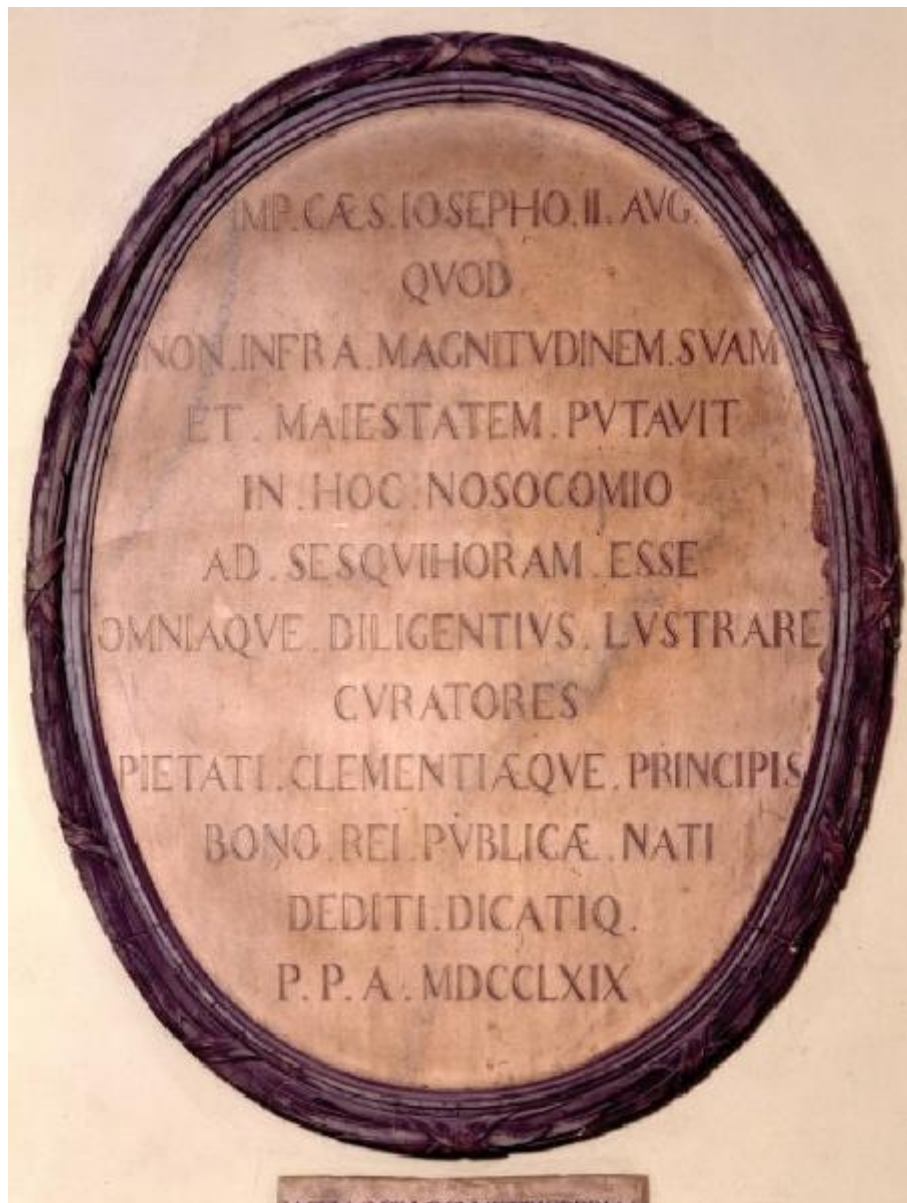 IMP. CÆS. IOSEPHO. II. AVG.
QVOD
NON. INFRA. MAGNITVDINEM. SVAM
ET. MAIESTATEM. PVTAVIT
IN. HOC. NOSOCOMIO
AD. SESQVIHORAM. ESSE
OMNIAQVE. DILIGENTIVS. LVSTRARE
CVRATORES
PIETATI. CLEMENTIÆQVE. PRINCIPIS
BONO. REI. PVBLICÆ. NATI
DEDITI. DICATIQ.
P. P. A. MDCCLXIX